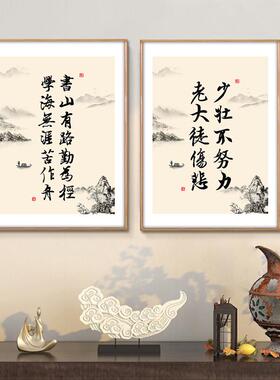 書山有路勤為徑
學海無涯苦作舟
少壯不努力
老大徒傷悲